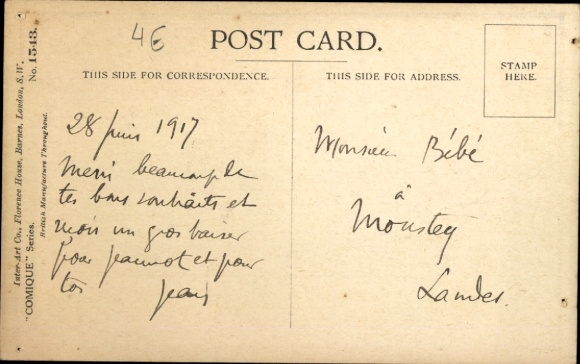 4€
POST CARD.
THIS SIDE FOR CORRESPONDENCE.
THIS SIDE FOR ADDRESS.
STAMP
HERE.
Inter-Art Co., Florence House, Barnes, London, S.W.
"COMIQUE" Series.
No. 1543.
British Manufacture Throughout.
28 juin 1917
Merci beaucoup de
tes bons souhaits et
un gros baiser
pour Jeannot et pour
toi Jean
Monsieur Bébé
à
Moustey
Landes.